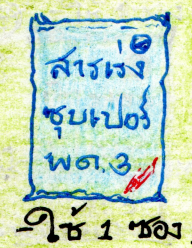 สารเร่ง
ซุปเปอร์
พด.3
-ใช้ 1 ซอง